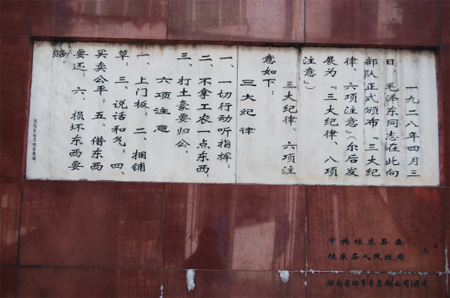 一九二八年四月三
日 毛泽东同志在此向
部队正式颁布“三大纪
律、六项注意”(尔后发
展为“三大纪律、八项
注意”)
三大纪律 六项注
意如下:
三大纪律
一、一切行动听指挥;
二、不拿工农一点东西;
三、打土豪要归公。
六项注意
一、上门板;二、捆铺
草;三、说话和气;四、
买卖公平;五、借东西
要还;六、损坏东西要
赔。
中共桂东县委
桂东县人民政府